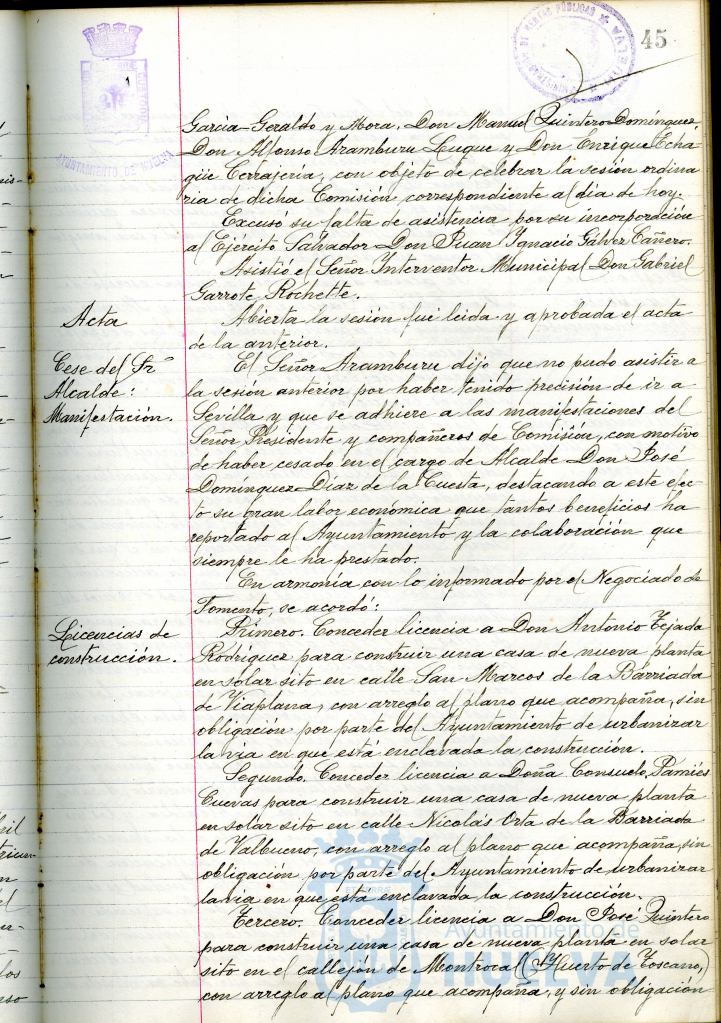 45
AYUNTAMIENTO DE HUELVA
García-Geraldo y Mora, Don Manuel Quintero Domínguez
Don Alfonso Aramburu Luque y Don Enrique Echa-
güe Cerrajería, con objeto de celebrar la sesión ordina
ria de dicha Comisión correspondiente al día de hoy.
Excusó su falta de asistencia por su incorporación
al Ejército Salvador Don Juan Ignacio Gálvez Cañero.
Asistió el Señor Interventor Municipal Don Gabriel
Garrote Rochette.
Acta
Abierta la sesión fué leida y aprobada el acta
de la anterior.
Cese del Sr
Alcalde:
Manifestación.
El Señor Aramburu dijo que no pudo asistir a
la sesión anterior por haber tenido precisión de ir a
Sevilla y que se adhiere a las manifestaciones del
Señor Presidente y compañeros de Comisión, con motivo
de haber cesado en el cargo de Alcalde Don José
Domínguez Diaz de la Cuesta, destacando a este efec-
to su gran labor económica que tantos beneficios ha
reportado al Ayuntamiento y la colaboración que
siempre le ha prestado.
En armonía con lo informado por el Negociado de
Fomento, se acordó:
Licencias de
construcción.
Primero. Conceder licencia a Don Antonio Tejada
Rodríguez para construir una casa de nueva planta
en solar sito en calle San Marcos de la Barriada
de Viaplana, con arreglo al plano que acompaña, sin
obligación por parte del Ayuntamiento de urbanizar
la via en que está enclavada la construcción.
Segundo. Conceder licencia a Doña Consuelo Pamiés
Cuevas para construir una casa de nueva planta
en solar sito en calle Nicolás Orta de la Barriada
de Valbueno, con arreglo al plano que acompaña, sin
obligación por parte del Ayuntamiento de urbanizar
la via en que está enclavada la construcción.
Tercero. Conceder licencia a Don José Quintero
para construir una casa de nueva planta en solar
sito en el callejón de Montrocal (Huerto de Toscano)
con arreglo al plano que acompaña, y sin obligación
Ayuntamiento de
HUELVA